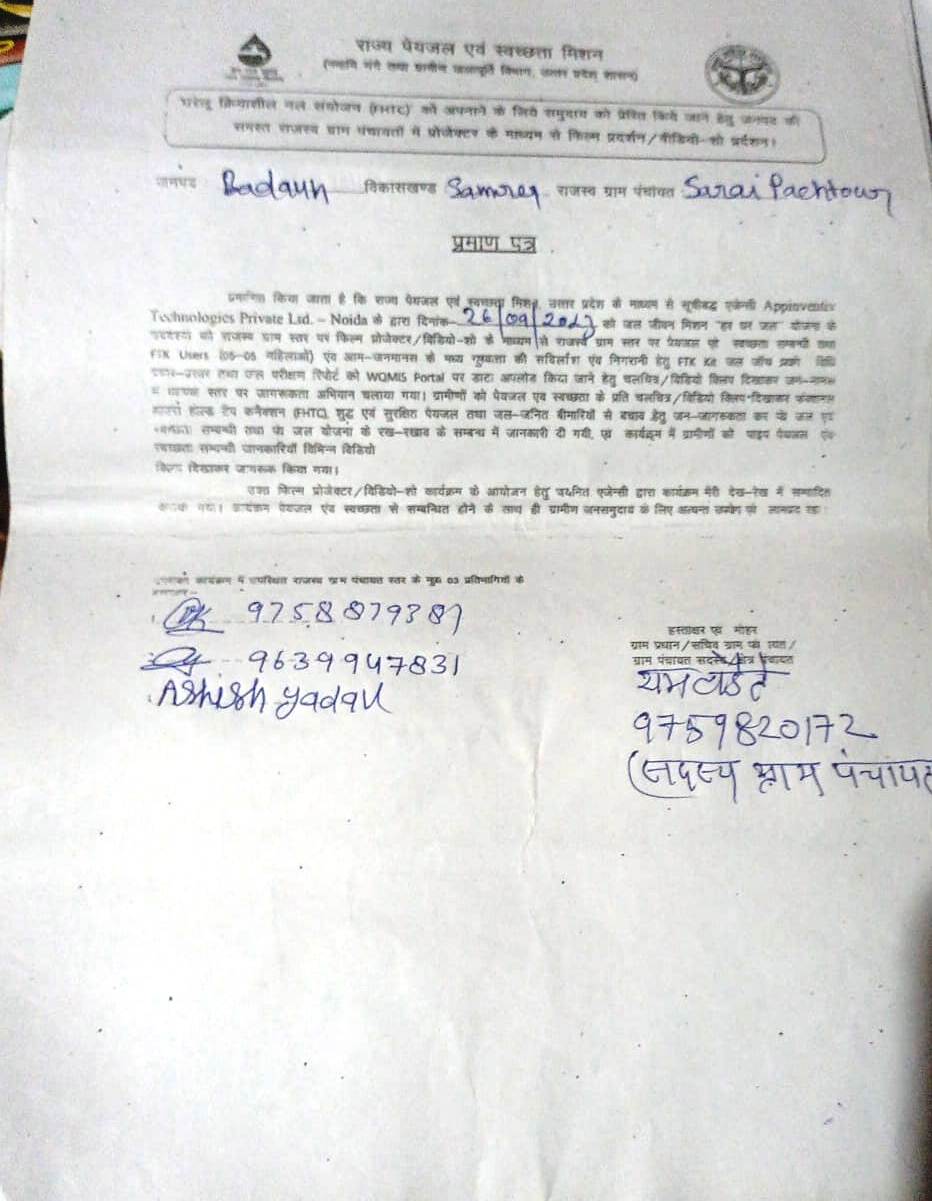 राज्य पेयजल एवं स्वच्छता मिशन
(नमामि गंगे तथा ग्रामीण जलापूर्ति विभाग, उत्तर प्रदेश शासन)
घरेलू क्रियाशील नल संयोजन (FHTC) को अपनाने के लिये समुदाय को प्रेरित किये जाने हेतु जनपद की
समस्त राजस्व ग्राम पंचायतों में प्रोजेक्टर के माध्यम से फिल्म प्रदर्शन/वीडियो-शो प्रर्दशन।
जनपद Badaun विकासखण्ड Samrer राजस्व ग्राम पंचायत Sarai Pachtour
प्रमाण पत्र
प्रमाणित किया जाता है कि राज्य पेयजल एवं स्वच्छता मिशन, उत्तर प्रदेश के माध्यम से सूचीबद्ध एजेन्सी Appinventiv
Technologies Private Ltd. – Noida के द्वारा दिनांक 26/09/2023 को जल जीवन मिशन "हर घर जल" योजना के
को राजस्व ग्राम स्तर पर फिल्म प्रोजेक्टर/विडियो-शो के माध्यम से राजस्व ग्राम स्तर पर पेयजल एवं स्वच्छता सम्बन्धी तथा
FTK Users (05-05 महिलाओं) एंव आम-जनमानस के मध्य गुणवत्ता की सर्विलांश एंव निगरानी हेतु FTK Kit जल जॉच विधि
तथा जल परीक्षण रिपोर्ट को WQMIS Portal पर डाटा अपलोड किया जाने हेतु चलचित्र/विडियो क्लिप दिखाकर जन-मानस
स्तर पर जागरूकता अभियान चलाया गया। ग्रामीणों को पेयजल एंव स्वच्छता के प्रति चलचित्र/विडियो क्लिप-दिखाकर फंक्शनल
हाउस होल्ड टैप कनैक्शन (FHTC) शुद्ध एवं सुरक्षित पेयजल तथा जल-जनित बीमारियों से बचाव हेतु जन-जागरूकता कर जल एंव
स्वच्छता सम्बन्धी तथा जल योजना के रख-रखाव के सम्बन्ध में जानकारी दी गयी, एंव कार्यक्रम में ग्रामीणों को पाइप पेयजल एंव
स्वच्छता सम्बन्धी जानकारियाँ विभिन्न विडियो
क्लिप दिखाकर जागरूक किया गया।
उक्त फिल्म प्रोजेक्टर/विडियो-शो कार्यक्रम के आयोजन हेतु चयनित एजेन्सी द्वारा कार्यक्रम मेरी देख-रेख में सम्पादित
गया। कार्यक्रम पेयजल एंव स्वच्छता से सम्बन्धित होने के साथ ही ग्रामीण जनसमुदाय के लिए अत्यन्त लाभप्रद रहा।
कार्यक्रम में उपस्थित राजस्व ग्राम पंचायत स्तर के मुख्य 03 प्रतिभागियों के
9758879381
9639947831
Ashish yadav
हस्ताक्षर एवं मोहर
ग्राम प्रधान/सचिव ग्राम पंचायत/
ग्राम पंचायत सदस्य/क्षेत्र पंचायत
9759820172
(सदस्य ग्राम पंचायत